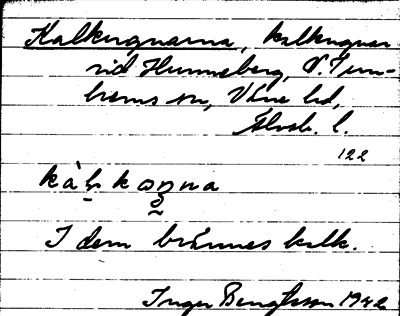 Kalkugnarna, kalkugnar
vid Hunneberg, V. Tun-
hems sn, Väne hd,
Älvsb. l.
122
kàḷkoŋna
I dem brännes kalk.
Inger Bengtsson 1942